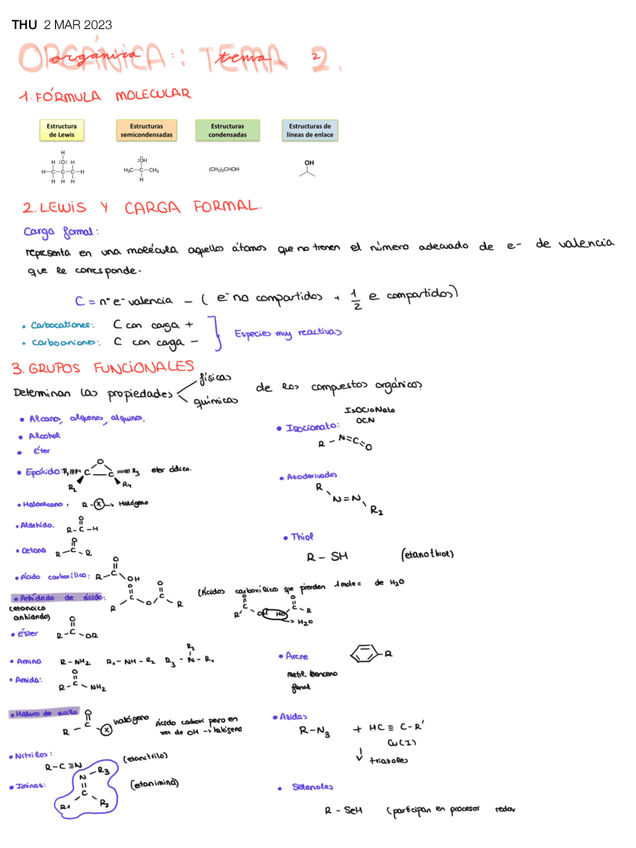 THU 2 MAR 2023
ORGÁNICA: TEMA 2.
orgánica : tema 2
1. FÓRMULA MOLECULAR
Estructura de Lewis
Estructuras semicondensadas
Estructuras condensadas
Estructuras de líneas de enlace
(CH₃)₂CHOH
OH
2. LEWIS Y CARGA FORMAL.
Carga formal:
representa en una molécula aquellos átomos que no tienen el número adecuado de e- de valencia
que le corresponde.
C = nº e⁻ valencia - ( e⁻ no compartidos + 1/2 e compartidos)
• Carbocationes: C con carga +
• carboaniones: C con carga -
Especies muy reactivas
3. GRUPOS FUNCIONALES
Determinan las propiedades físicas químicas de los compuestos orgánicos
• Alcano, alqueno, alquino.
• Alcohol
• Éter
• Epóxido: R₁ C O C R₃ R₂ R₄ eter cíclico.
• Haloalcano: R - X → Halógeno
• Aldehído. R - C - H O
• Cetona R - C - R O
• Ácido carboxílico: R - C - OH O
• Anhídrido de ácido: R C O C R O O (Ácidos carboxílicos que pierden 1 molec de H₂O
etanoico
anhidrido)
R' C OH HO C R → H₂O
• Éster R - C - OR O
• Amina R - NH₂ R₁ - NH - R₂ R₃ - N - R₁ R₂
• Amida: R - C - NH₂ O
• Haluro de acilo R - C - X O halógeno ácido carboxi pero en
vez de OH → halógeno
• Nitrilos: R - C ≡ N (etanitrilo)
• Iminas: N - R₃ C R₁ R₂ (etanimina)
• Isocionato: IsOCIoNato
OCN
R - N = C = O
• Azoderivados
R N = N R₂
• Thiol
R - SH (etanothiol)
• Arene - R
metil benceno
fenol
• Azidas
R - N₃ + HC ≡ C - R'
Cu(I)
triazoles
• Selenoles
R - SeH (participan en procesos redox